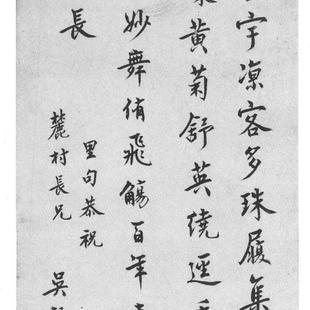 宇凉客多珠履集
黄菊舒英繞逕
妙舞侑飛觴百年
長
里句恭祝
麓村長兄
吳